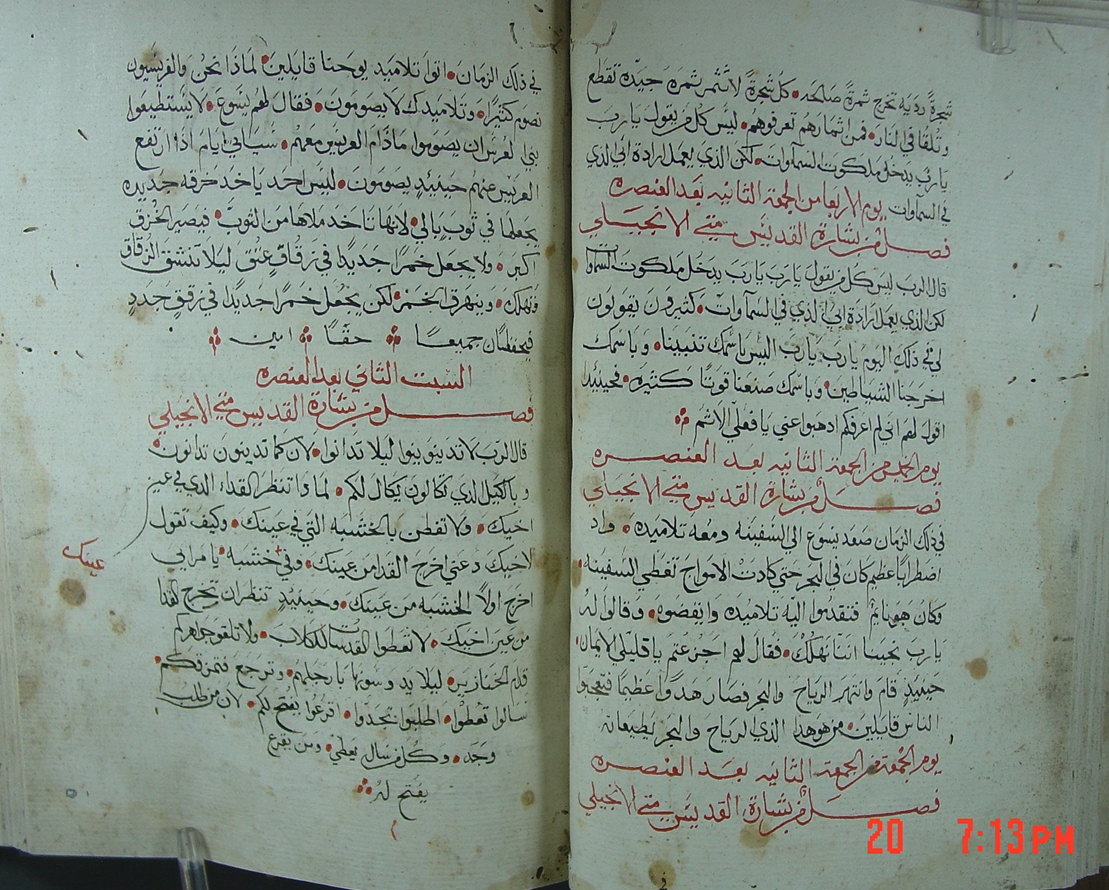 شجرةً رديه تخرج ثمرةً صالحه. كل شجرةً لا تثمر ثمره جيده تقطع
وتلقا في النار. فمن اثمارهم تعرفوهم. ليس كل من يقول يا رب
يا رب يدخل ملكوت السماوات. لكن الذي يعمل ارادة ابي الذي
في السماوات يوم الاربعا من الجمعة الثانيه بعد العنصره
فصل من بشارة القديس متي الانجيلي
قال الرب ليس كل من يقول يا رب يا رب يدخل ملكوت السماوا
لكن الذي يعمل ارادة ابي الذي في السماوات. كثيرون يقولون
لي في ذلك اليوم يا رب يا رب اليس باسمك تنبينا. وباسمك
اخرجنا الشياطين. وباسمك صنعنا قوتًا كثيره. فحينيدٍ
اقول لهم اني لم اعرفكم ادهبوا عني يا فعلي الاثم
يوم الخميس من الجمعة الثانيه بعد العنصره
فصل من بشارة القديس متي الانجيلي
في ذلك الزمان صعد يسوع الي السفينه ومعه تلاميده. واد
اضطرابًا عظيم كان في البحر حتي كادت الامواج تغطي السفينه.
وكان هو نايم فتقدموا اليه تلاميده وايقضوه. وقالوا له
يا رب نجينا اننا نهلك. فقال لهم اجزعتم يا قليلي الايمان.
حينيدٍ قام وانتهر الرياح والبحر فصار هدوًا عظيمًا فتعجبوا
الناس قايلين. من هو هدا الذي الرياح والبحر يطيعانه
يوم الجمعة من الجمعة الثانيه بعد العنصره
فصل من بشارة القديس متي الانجيلي
في ذلك الزمان. اتوا تلاميد يوحنا قايلين. لماذا نحن والفريسيون
نصوم كثيرًا. وتلاميدك لا يصومون. فقال لهم يسوع. لا يستطيعوا
بني العرس ان يصوموا ما دام العريس معهم. سياتي ايام اذا ارتفع
العريس عنهم حينيدٍ يصومون. ليس احد ياخد خرقه جديده
يجعلها في ثوب بالي. لانها تاخد ملاها من الثوب. فيصير الخزق
اكبر. ولا يجعل خمرًا جديدًا في زقاقٍ عتق ليلا تنشق الزقاق
وتهلك. ويهرق الخمر. لكن يجعل خمرًا جديدًا في زققٍ جددٍ
فيحفظان جميعًا حقًا امين
السبت الثاني بعد العنصره
فصل من بشارة القديس متي الانجيلي
قال الرب لا تدينوا ليلا تدانوا. لان كما تدينون تدانون.
وبالكيل الذي تكالون يكال لكم. لما دا تنظر القداء الذي في عين
اخيك. ولا تفطن بالخشبه التي في عينك. وكيف تقول
لاخيك دعني اخرج القدا من عينك. وفي خشبه. يا مرايي
عينك
اخرج اولًا الخشبه من عينك. وحينيدٍ تنظر ان تخرج القدا
من عين اخيك. لا تعطوا القدسات للكلاب. ولا تلقوا جواهركم
قدام الخنازير. ليلا يدوسونها بارجلهم. وترجع فتمزقكم.
سالوا تعطوا. اطلبوا تجدوا. اقرعوا يفتح لكم. لان من طلب
وجد. وكل من سال يعطي. ومن يقرع
يفتح له
20 7:13 PM